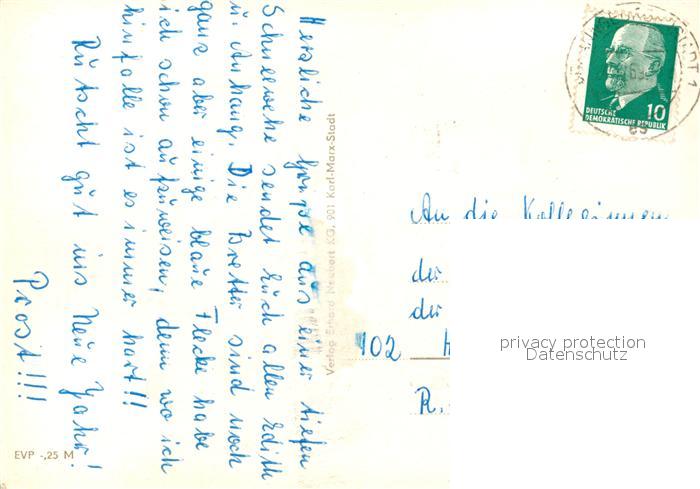 Herzliche Grüße aus einer tiefen
Schneewehe sendet Euch allen Edith
u. Anhang. Die Bretter sind noch
ganz aber einige blaue Flecke habe
ich schon aufzuweisen, denn wo ich
hinfalle ist es immer hart!!
Rutscht gut ins Neue Jahr!
Prost!!!
EVP -,25 M
Verlag Erhard Neubert KG, 901 Karl-Marx-Stadt
DEUTSCHE
DEMOKRATISCHE REPUBLIK
10
An die Kolleginnen
der
der
102
R.
privacy protection
Datenschutz